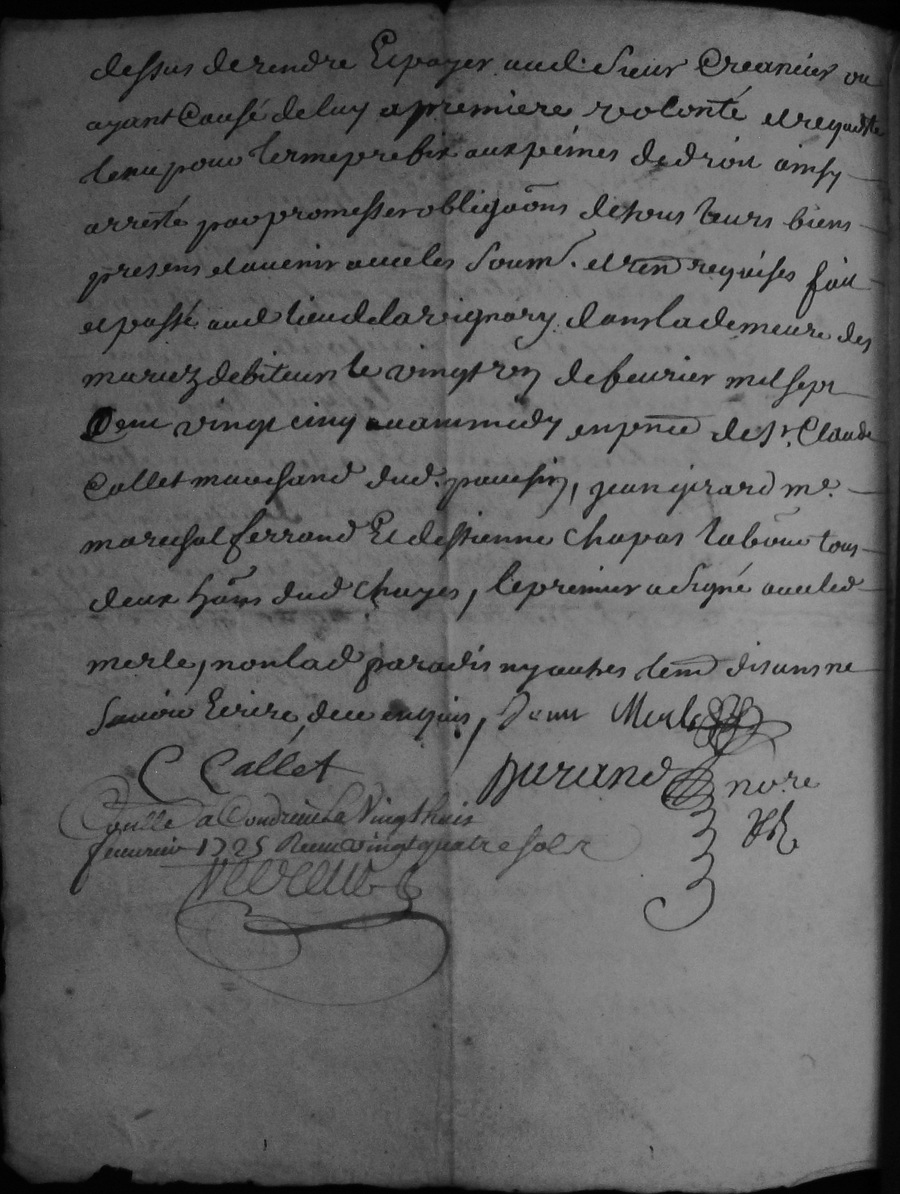 dessus de rendre Et payer aud. Sieur Creancier ou
ayant Cause de luy a premiere volonté et requiste
tenu pour terme prefix aux peines de droit ainsy
arresté par promesses obligaõns de tous leurs biens
presens et avenir avec les Soum. et ren requises fait
et passé aud lieu de la vignary dans la demeure des
mariez debiteurs le vingt de feuvrier mil sept
Cent vingt cinq avant midy en pnce de Sr. Claude
Collet marchand dud. jean girard me.
mareschal ferrand Et destienne Chapas tous
deux hãns dud Chuyes, le premier a signé avec led
merle, non lad paradis ny autres tem disans ne
Scavoir Ecrire, de ce enquis, Jean Merle
C Collet
Durand nore
Conllé a Condrieu Le Vingt huit
feuvrier 1725 Receu vingt quatre sols